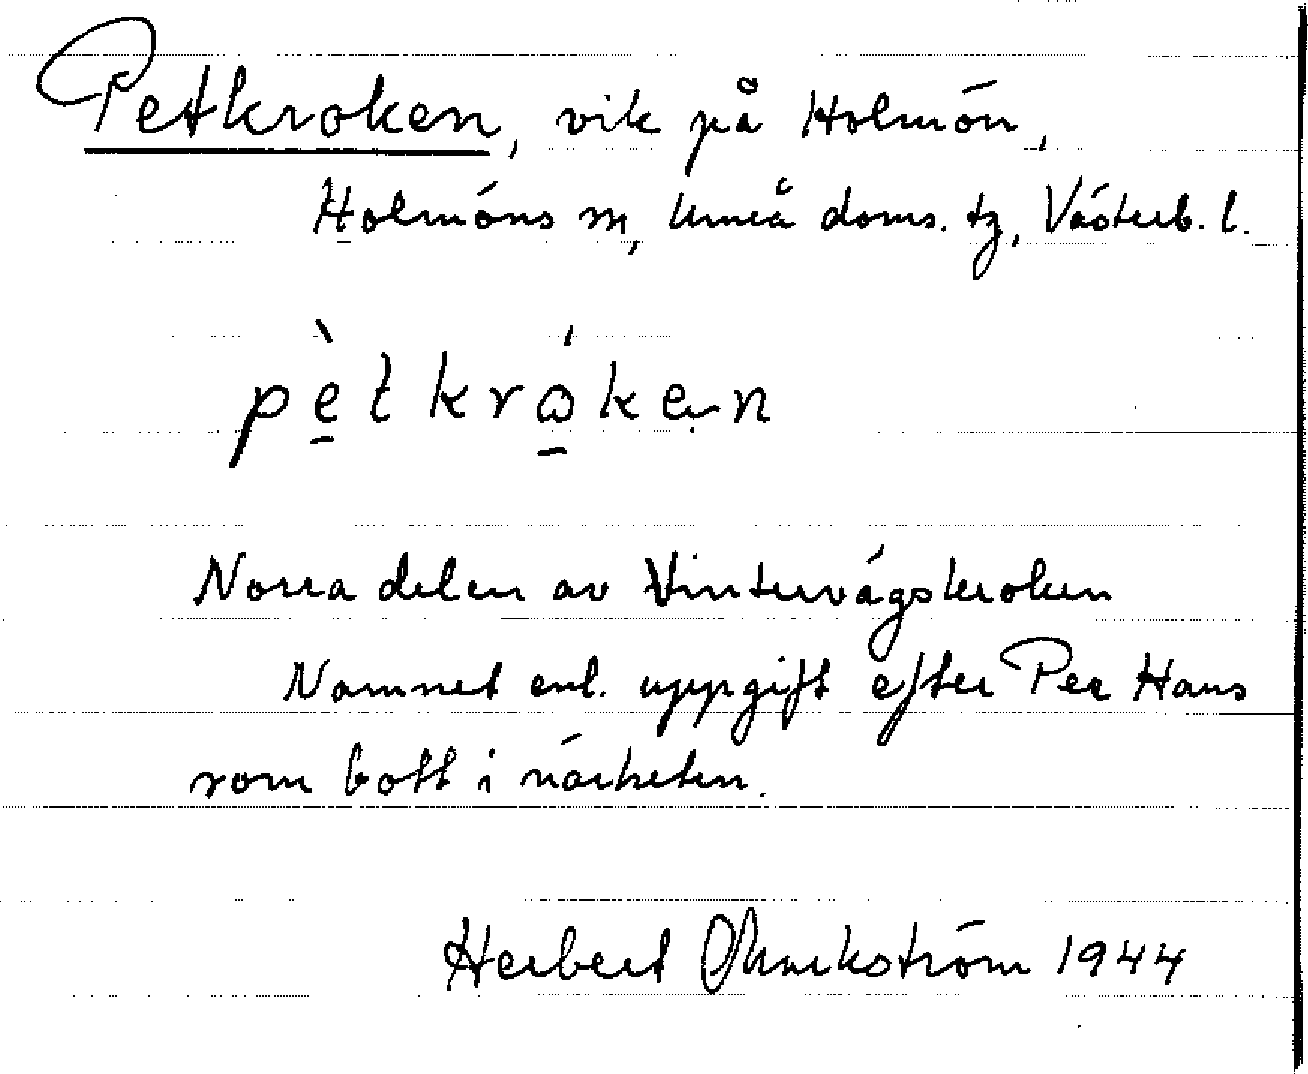 Petkroken, vik på Holmön,
Holmöns sn, Umeå doms. tg, Västerb. l.
pètkróken
Norra delen av Vintervägskroken
Namnet enl. uppgift efter Per Hans
som bott i närheten.
Herbert Markström 1944